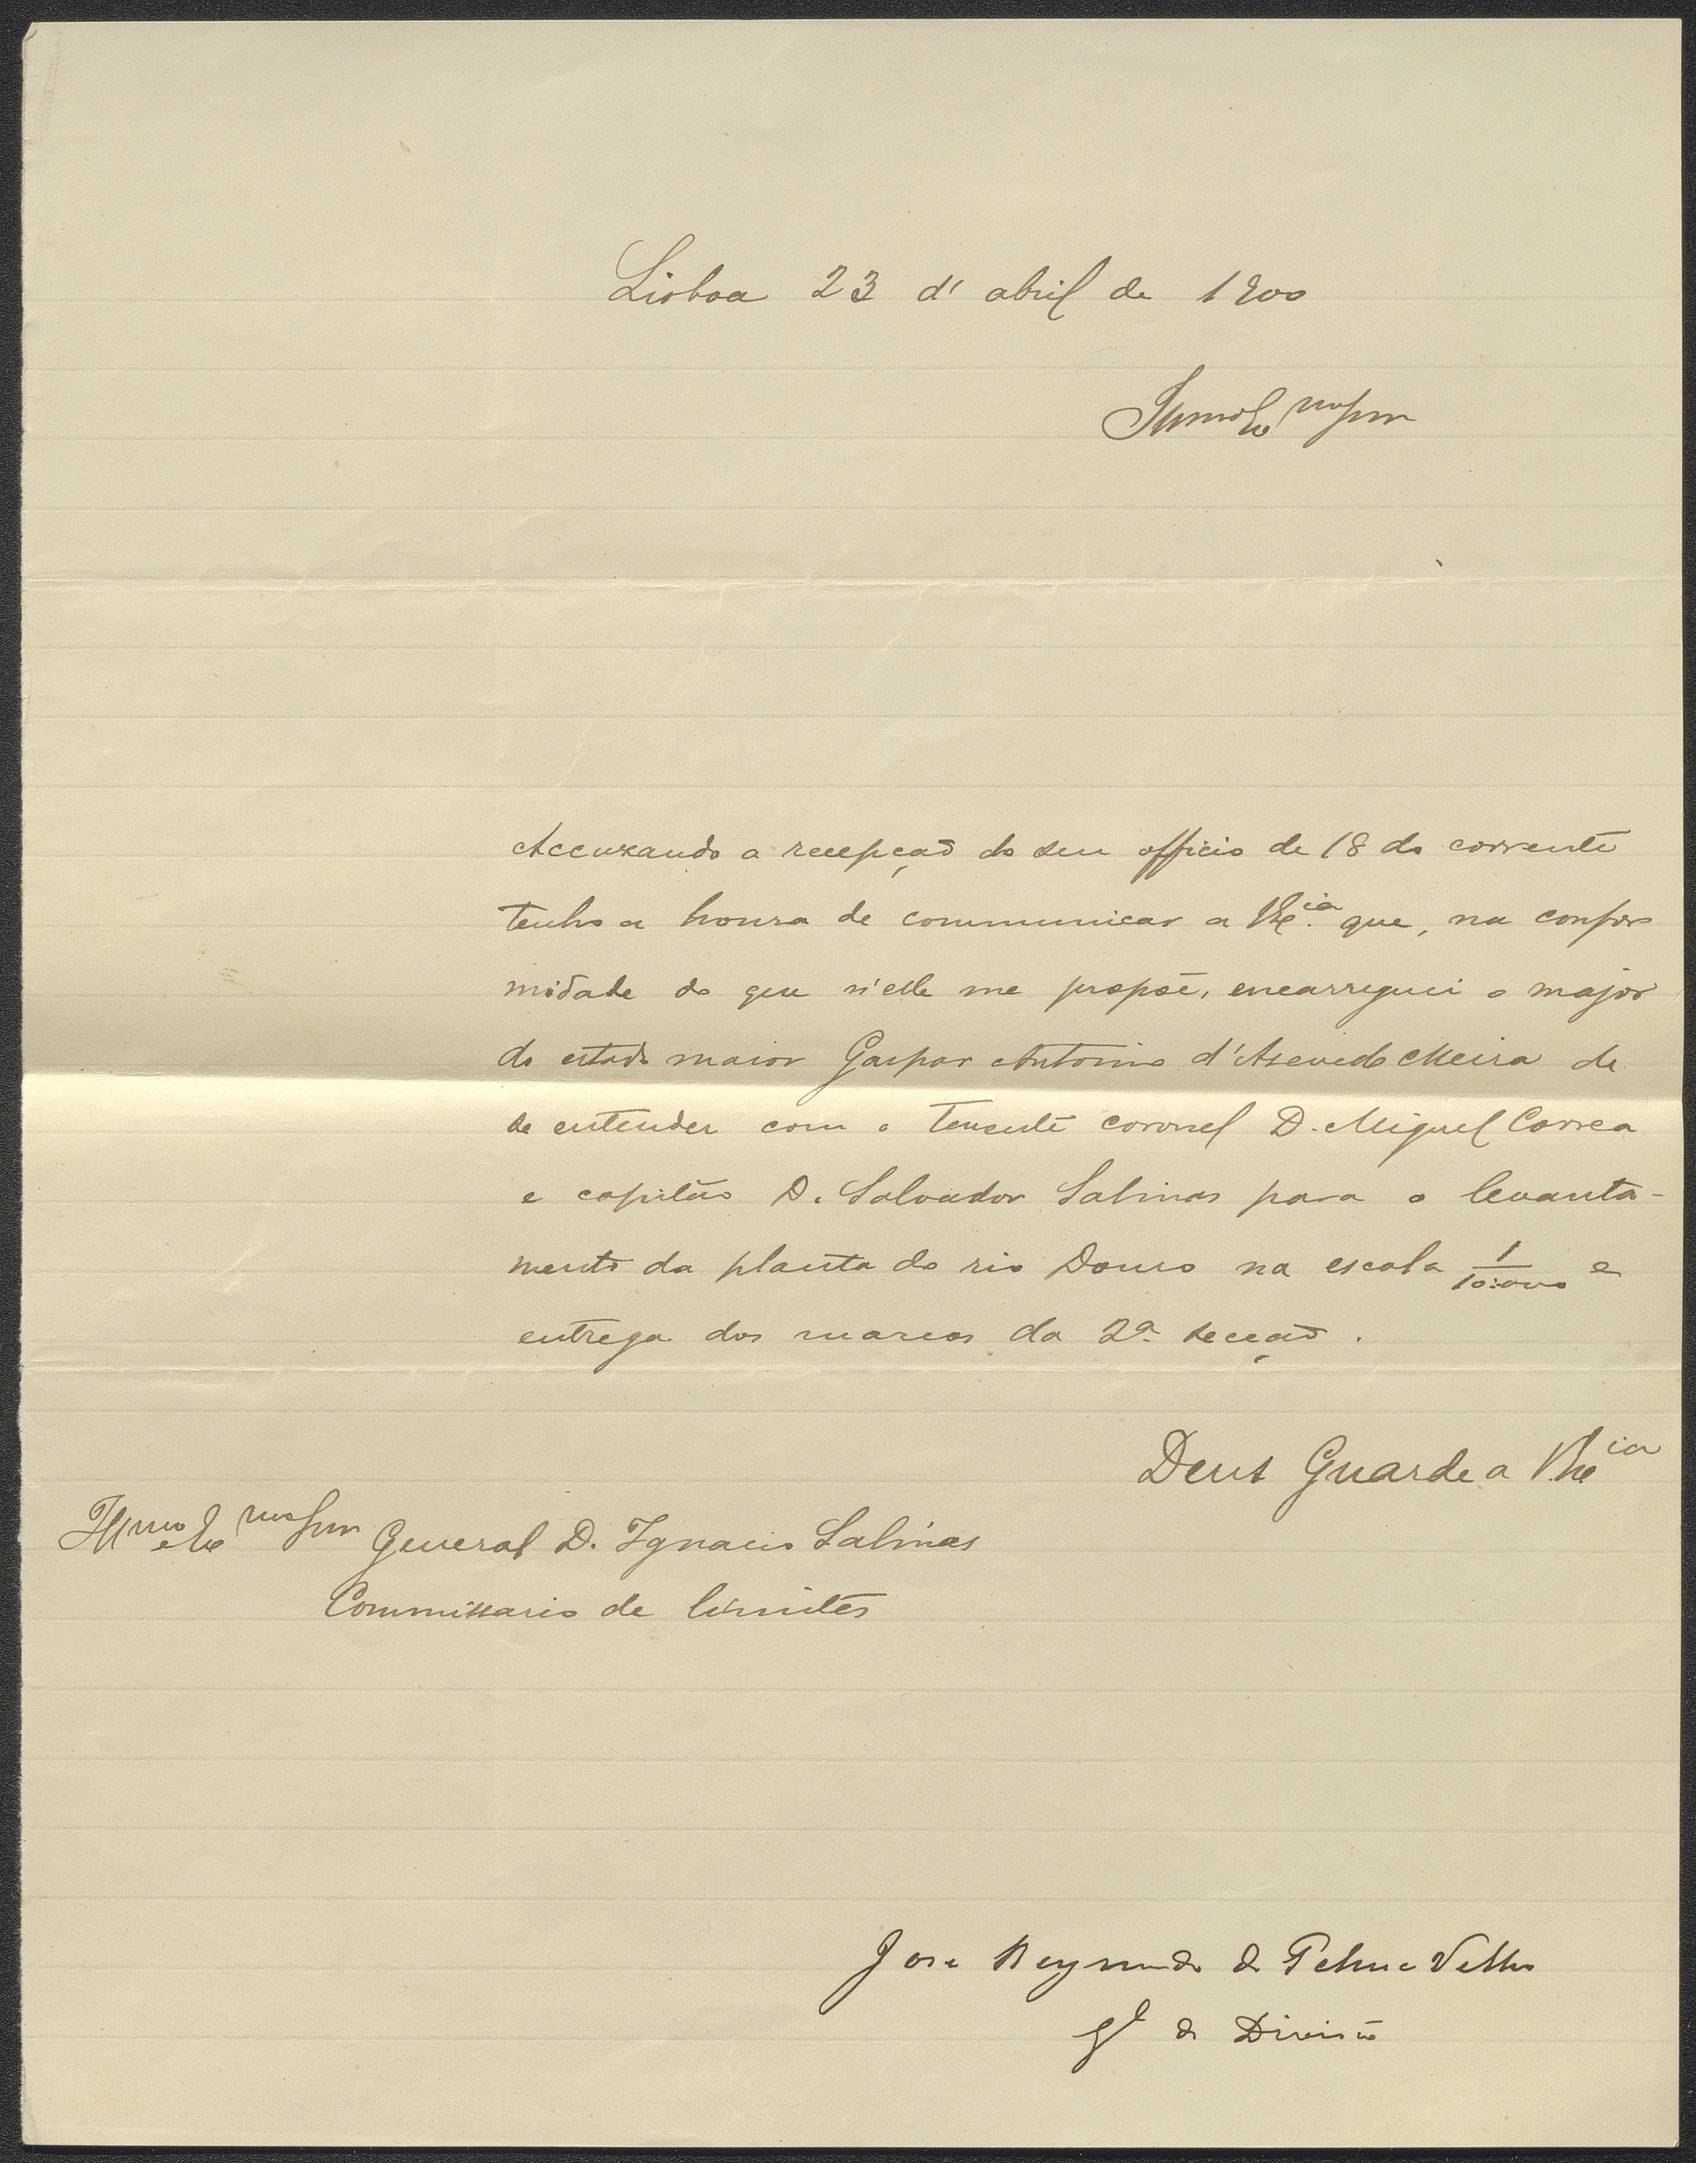 Lisboa 23 d'abril de 1900
Illmo Ex mo Snr
Accuzando a recepção do seu officio de 18 do corrente
tenho a honra de communicar a V Exª que, na confor
midade do que n'elle me propõe, encarreguei o major
do estado maior Gaspar Antonio d'Azevedo Meira de
se entender com o tenente coronel D. Miguel Correa
e capitão D. Salvador Salinas para o levanta-
mento da planta do rio Douro na escala 1/10:000 e
entrega dos marcos da 2ª secção.
Deus Guarde a V Ex cia
Illmo e Ex mo Snr General D. Ignacio Salinas
Commissario de limites
José Reymundo da Palma Velho
Gl de Divisão